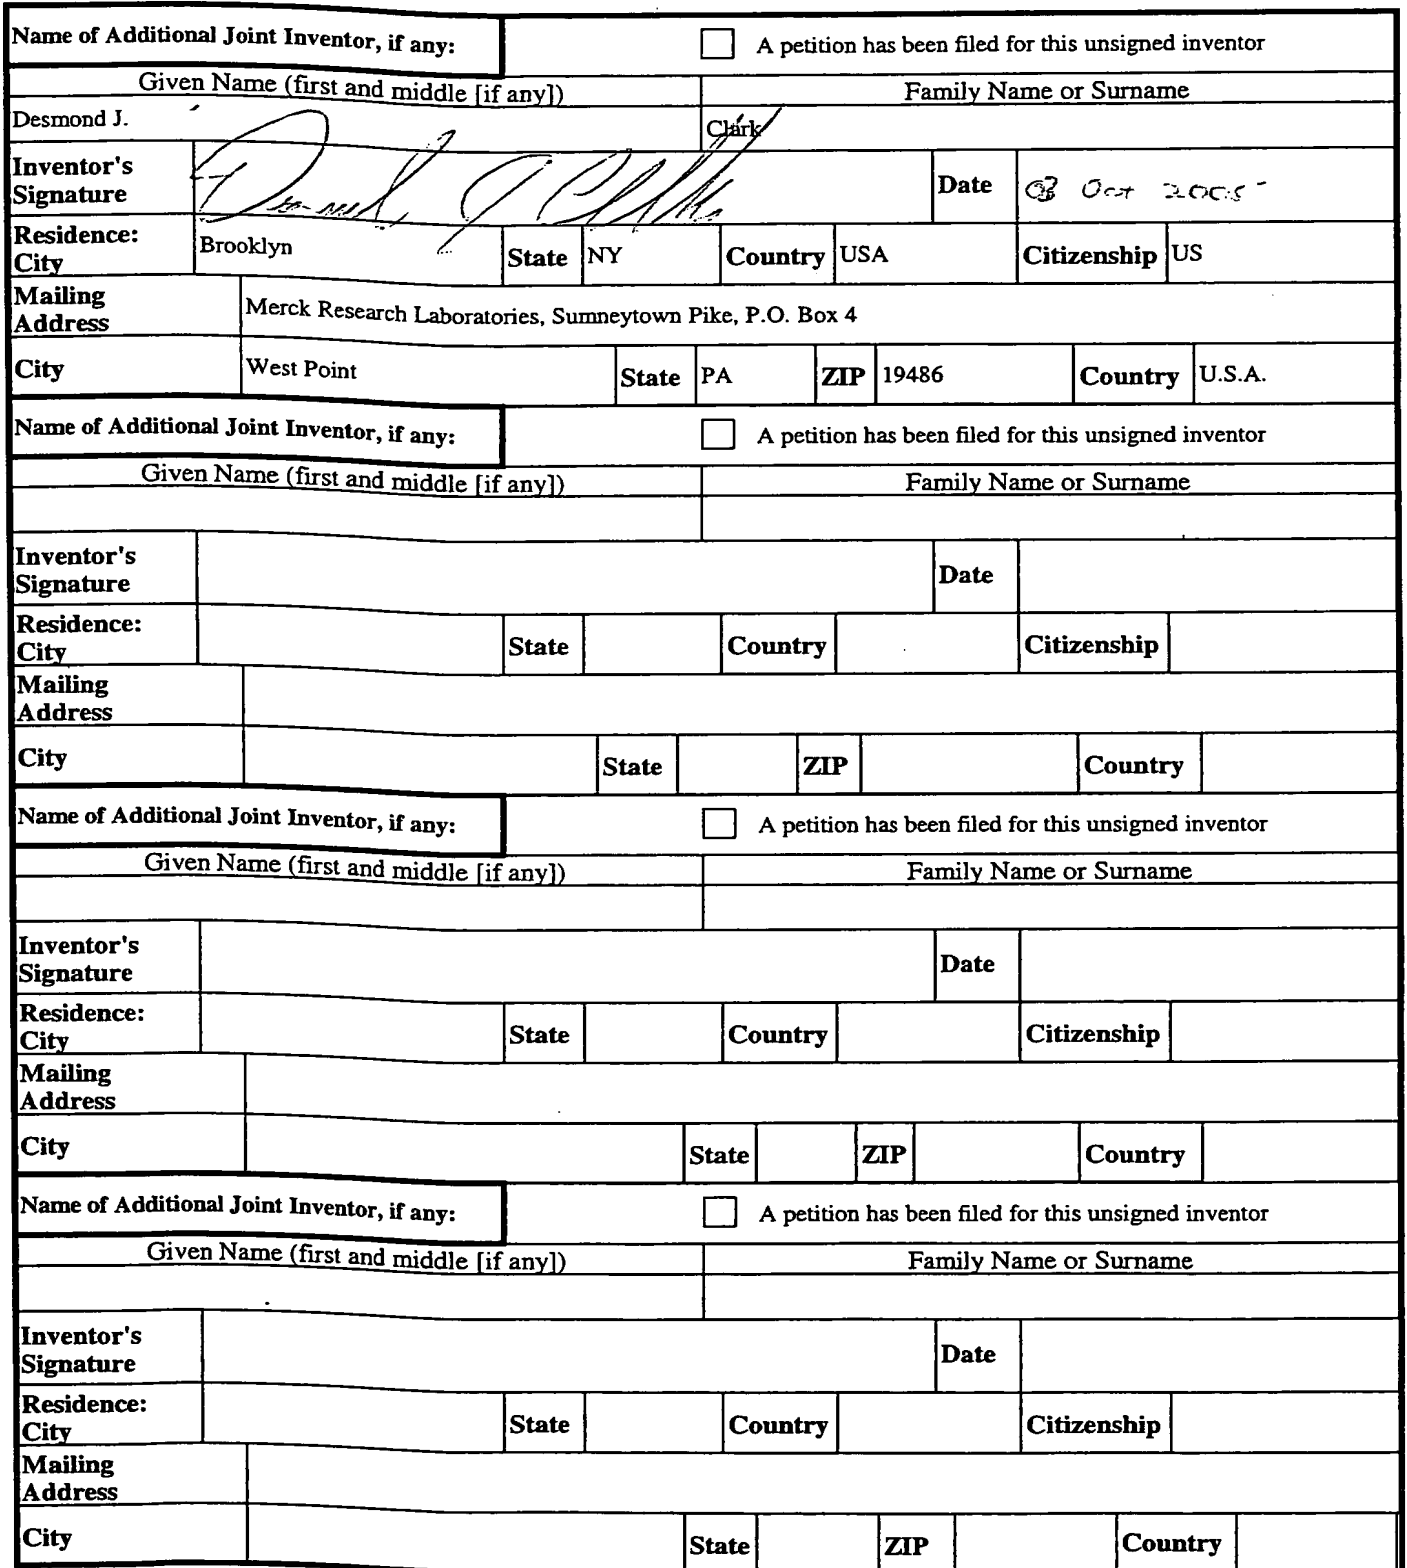 Name of Additional Joint Inventor, if any: A petition has been filed for this unsigned inventor
Given Name (first and middle [if any]) Family Name or Surname
Desmond J. Clark
Inventor's Signature Date Oct 2005
Residence: City Brooklyn State NY Country USA Citizenship US
Mailing Address Merck Research Laboratories, Sumneytown Pike, P.O. Box 4
City West Point State PA ZIP 19486 Country U.S.A.
Name of Additional Joint Inventor, if any: A petition has been filed for this unsigned inventor
Given Name (first and middle [if any]) Family Name or Surname
Inventor's Signature Date
Residence: City State Country Citizenship
Mailing Address
City State ZIP Country
Name of Additional Joint Inventor, if any: A petition has been filed for this unsigned inventor
Given Name (first and middle [if any]) Family Name or Surname
Inventor's Signature Date
Residence: City State Country Citizenship
Mailing Address
City State ZIP Country
Name of Additional Joint Inventor, if any: A petition has been filed for this unsigned inventor
Given Name (first and middle [if any]) Family Name or Surname
Inventor's Signature Date
Residence: City State Country Citizenship
Mailing Address
City State ZIP Country